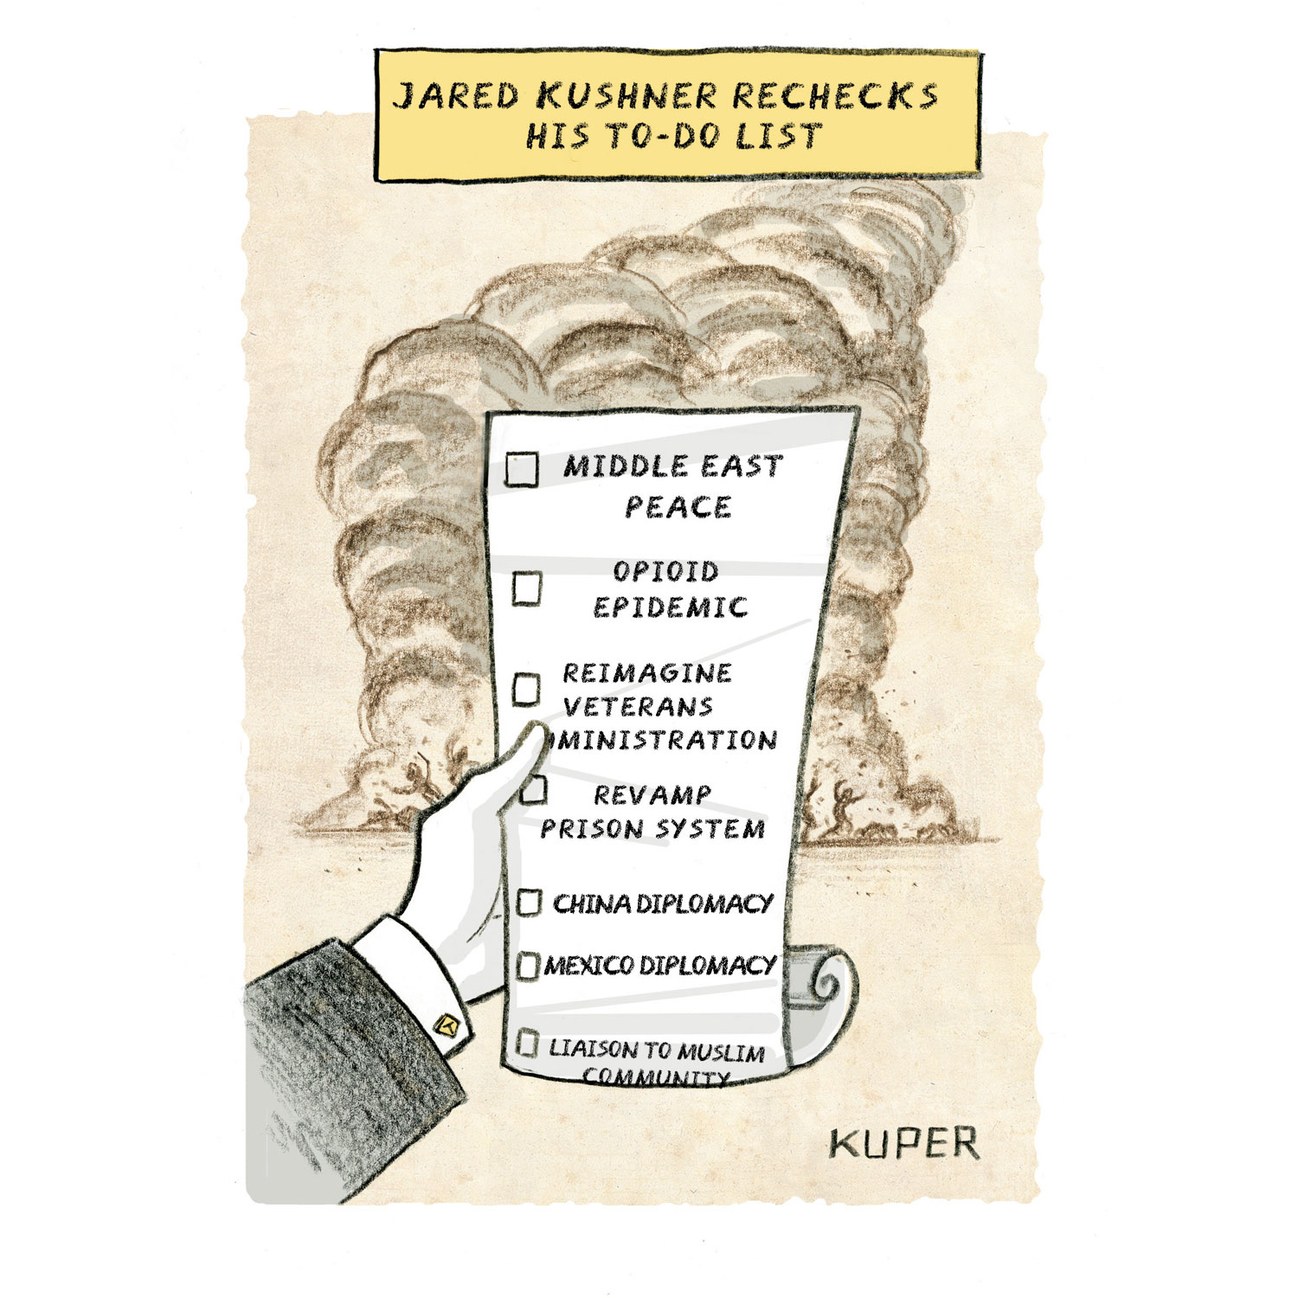 JARED KUSHNER RECHECKS
HIS TO-DO LIST
MIDDLE EAST
PEACE
OPIOID
EPIDEMIC
REIMAGINE
VETERANS
MINISTRATION
REVAMP
PRISON SYSTEM
CHINA DIPLOMACY
MEXICO DIPLOMACY
LIAISON TO MUSLIM
COMMUNITY
KUPER